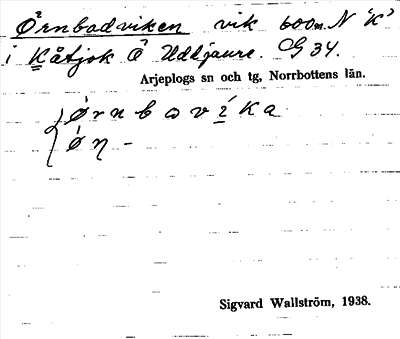 Örnbadviken vik 600m N "K"
i Kåtjok Ö Uddjaure. G 34.
Arjeplogs sn och tg, Norrbottens län.
ö́rnbavíka
ǿŋ -
Sigvard Wallström, 1938.